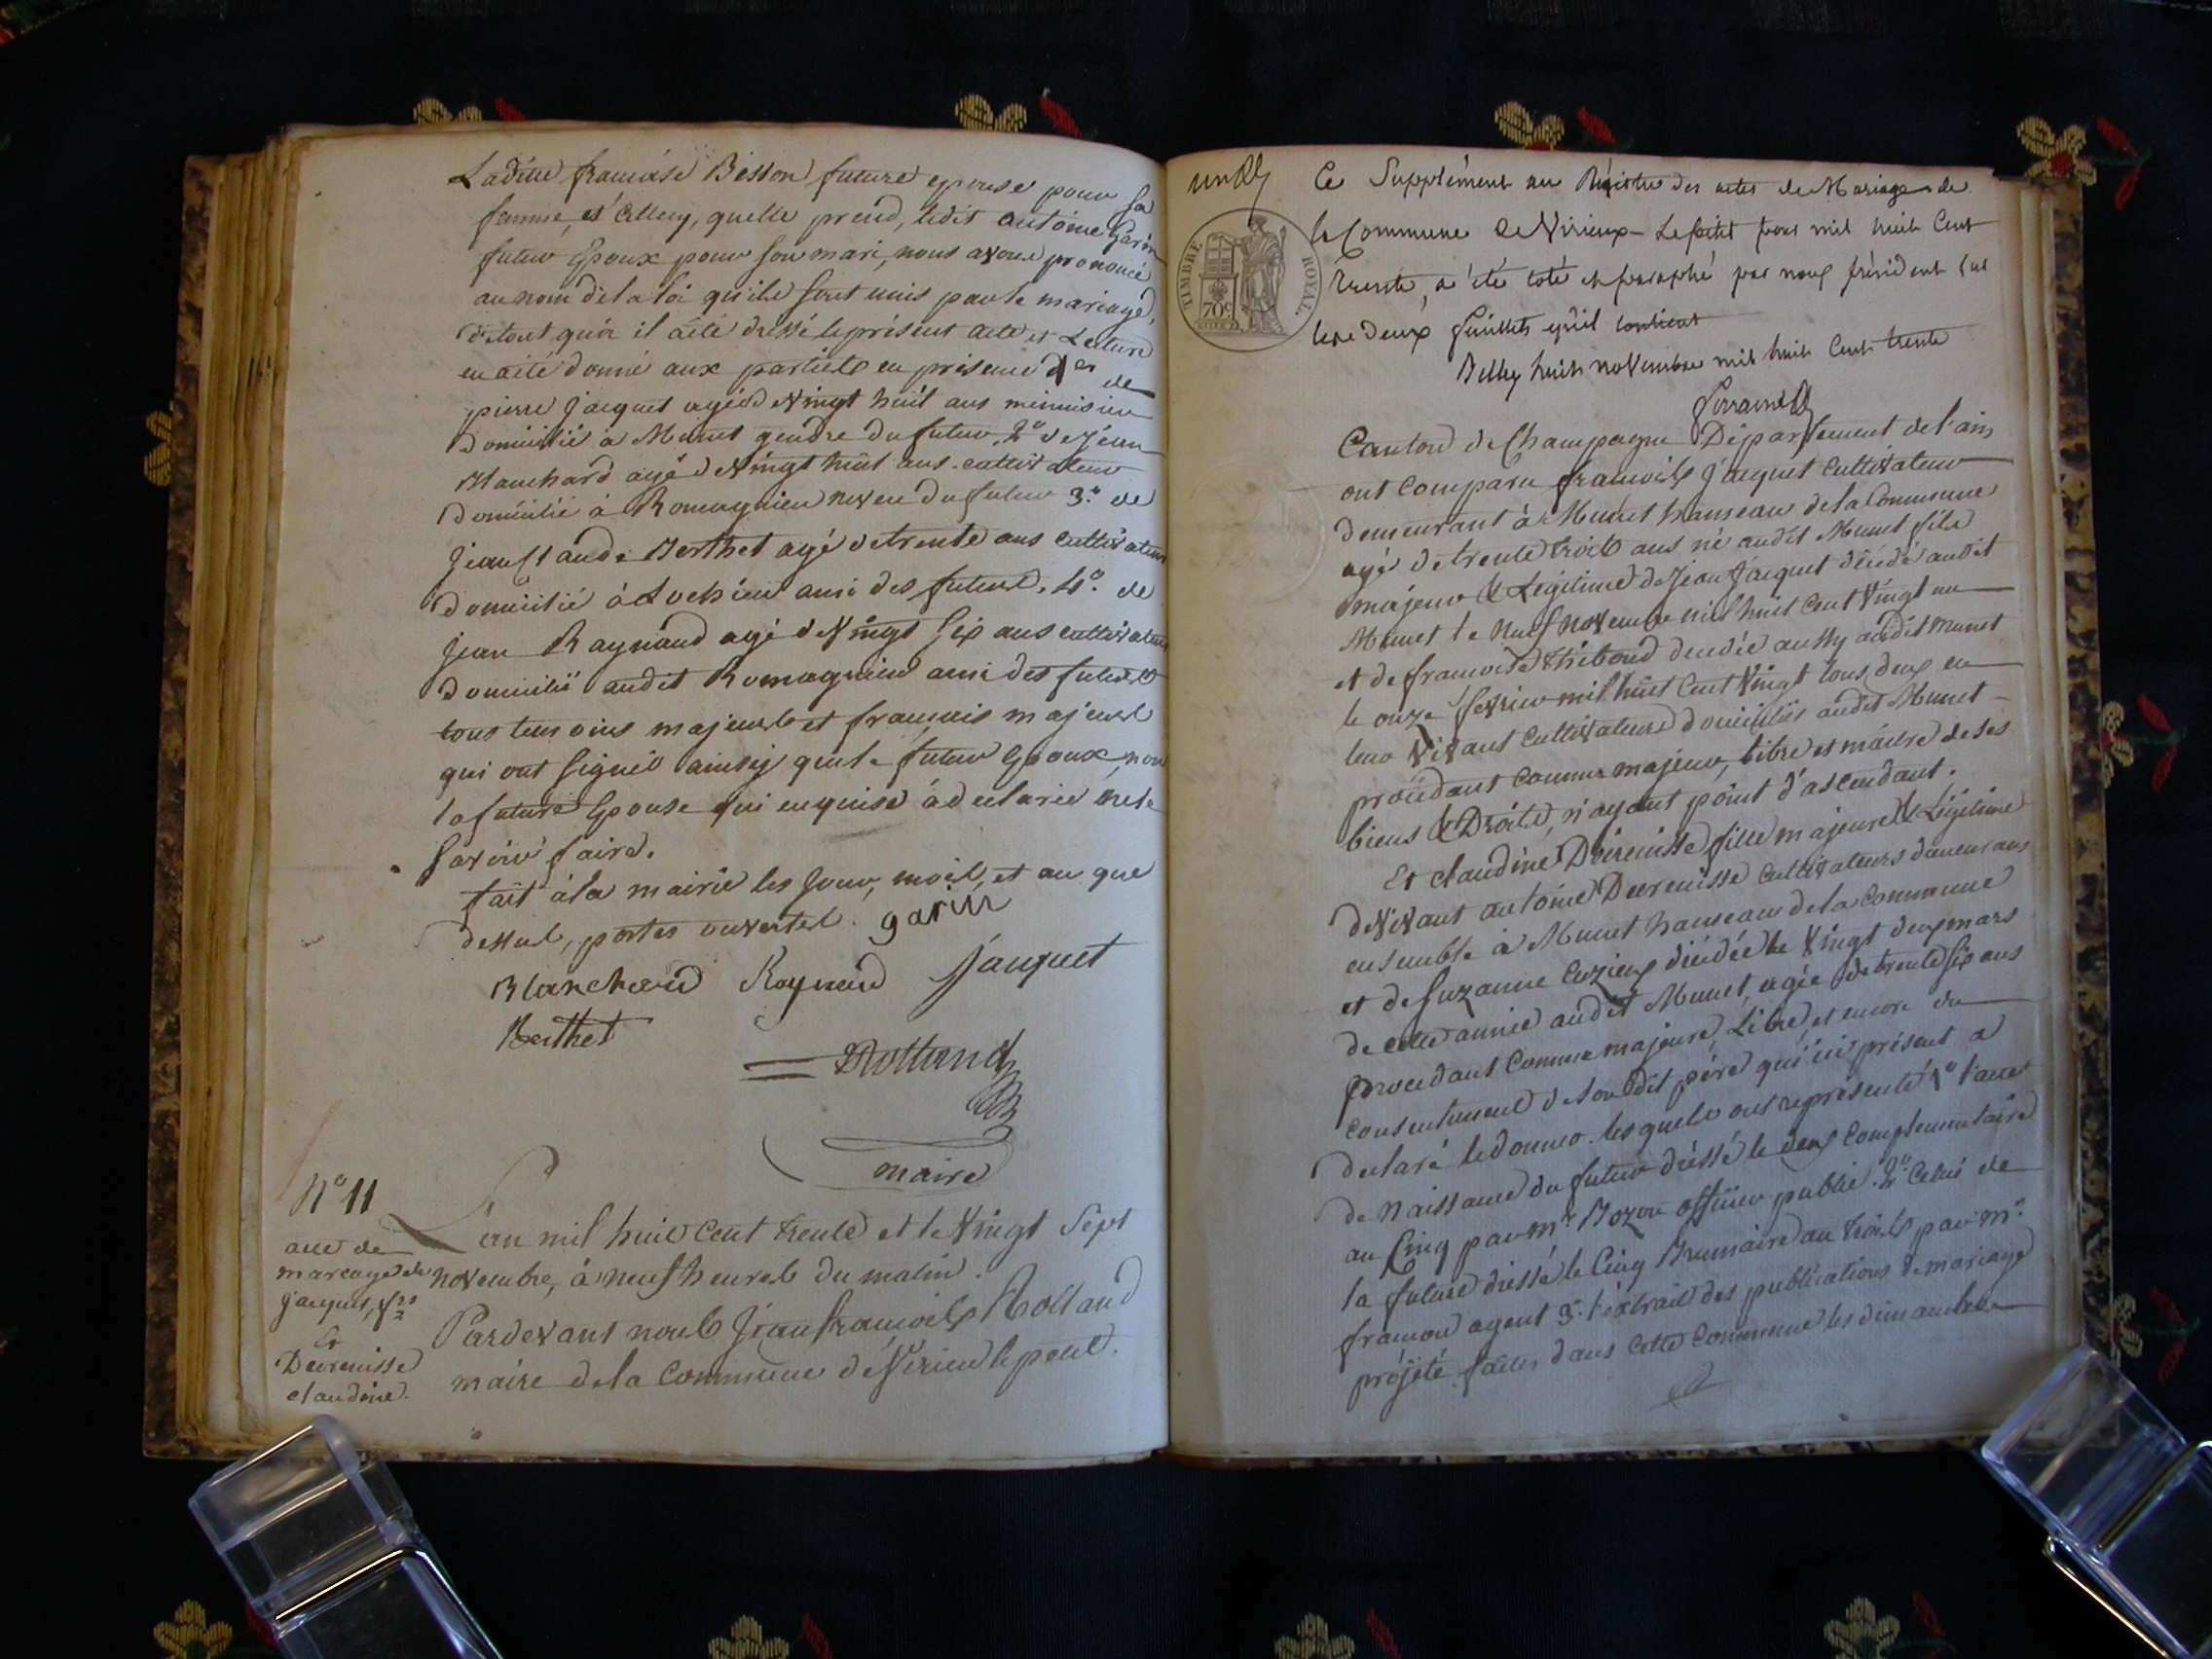 Ladite francoise Besson future epouse pour sa
femme, et Celleci, quelle prend, ledit antoine Garin
futur Epoux pour son mari, nous avons prononcé
au nom de la loi qu'ils sont unis par le mariage,
de tout quoi il a été dressé le présent acte et Lecture
en a été donné aux parties en présence de
pierre Jacquet agé de Vingt huit ans menuisier
domicilié à Munet gendre du futur, 2º de Jean
Blanchard agé de Vingt huit ans cultivateur
domicilié à Romagnieu neveu du futur 3º de
Jean Claude Berthet agé de trente ans cultivateur
domicilié à Lochieu ami des futurs, 4º de
jean Raynaud agé de Vingt six ans cultivateur
domicilié audit Romagnieu ami des futurs
tous temoins majeurs et francais majeurs
qui ont signés ainsy que le futur Epoux, non
la future Epouse qui enquise à declaré ne le
savoir faire.
fait à la mairie les jour, mois, et an que
dessus, portes ouvertes. garin
Blanchard Raynaud Jacquet
Berthet
Rolland
maire
Nº 11
acte de
mariage de
jacquet, fois
Et
Decrenisse
claudine.
L'an mil huit Cent trente et le Vingt Sept
novembre, à neuf heures du matin.
Pardevant nous Jean francois Rolland
maire de la Commune de Virieu le petit.
un
TIMBRE ROYAL
70c
Ce Supplément au Régistre des actes de Mariage de
la Commune de Virieux-Le petit pour mil huit Cent
trente, a été coté et paraphé par nous président sur
les deux feuillets qu'il contient
Belley huit novembre mil huit Cent trente
Canton de Champagne Département de l'ain
ont comparu francois Jacquet Cultivateur
demeurant à Munet hameau de la Commune
agé de trente trois ans né audit Munet fils
majeur & Legitime de Jean Jacquet décédé audit
Munet le neuf Novembre mil huit Cent Vingt un
et de francoise Thibaud decedée aussy audit Munet
le onze fevrier mil huit Cent Vingt tous deux en
leur Vivant Cultivateurs domiciliés audit Munet
procédant comme majeur, libre et maitre de ses
biens & Droits, n'ayant point d'ascendant.
Et claudine Decrenisse fille majeure & Légitime
de Vivant antoine Decrenisse Cultivateurs demeurans
ensemble à Munet hameau de la Commune
et de Suzanne Cuzieux décédée le Vingt deux mars
de cette année audit Munet, agée de trente six ans
procedant Comme majeure, Libre, et encore du
consentement de son dit père qui ici présent a
declaré le donner. lesquels ont représenté 1º l'acte
de Naissance du futur dréssé le deux Complementaire
an Cinq par mr. Bozon officier public. 2º Celui de
la future dressé le Cinq Brumaire an trois par mr.
francon agent 3º. l'extrait des publications de mariage
projété faites dans Cette Commune les dimanches